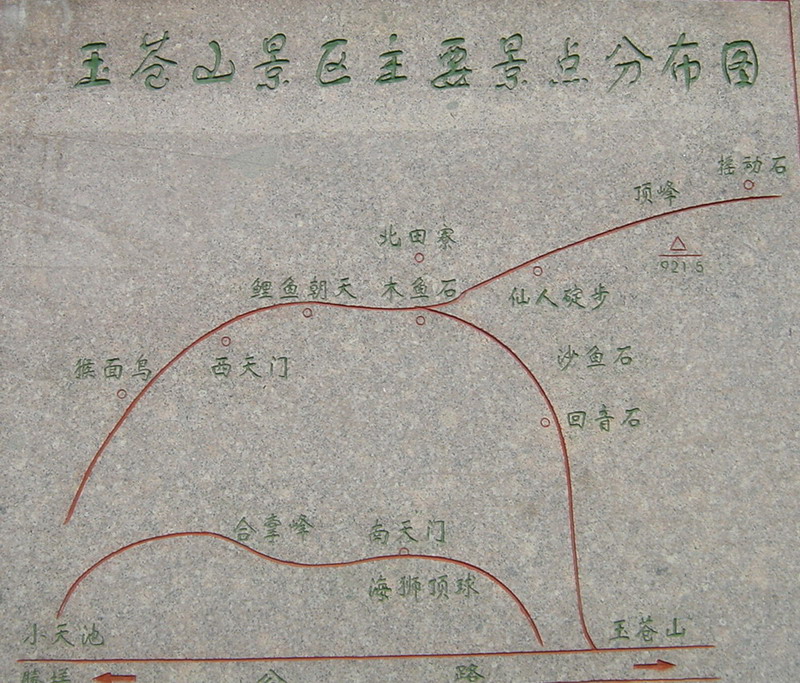 玉苍山景区主要景点分布图
摇动石
顶峰
北田寮
921.5
鲤鱼朝天
木鱼石
仙人碇步
沙鱼石
猴面鸟
西天门
回音石
合掌峰
南天门
海狮顶球
小天池
玉苍山
公路